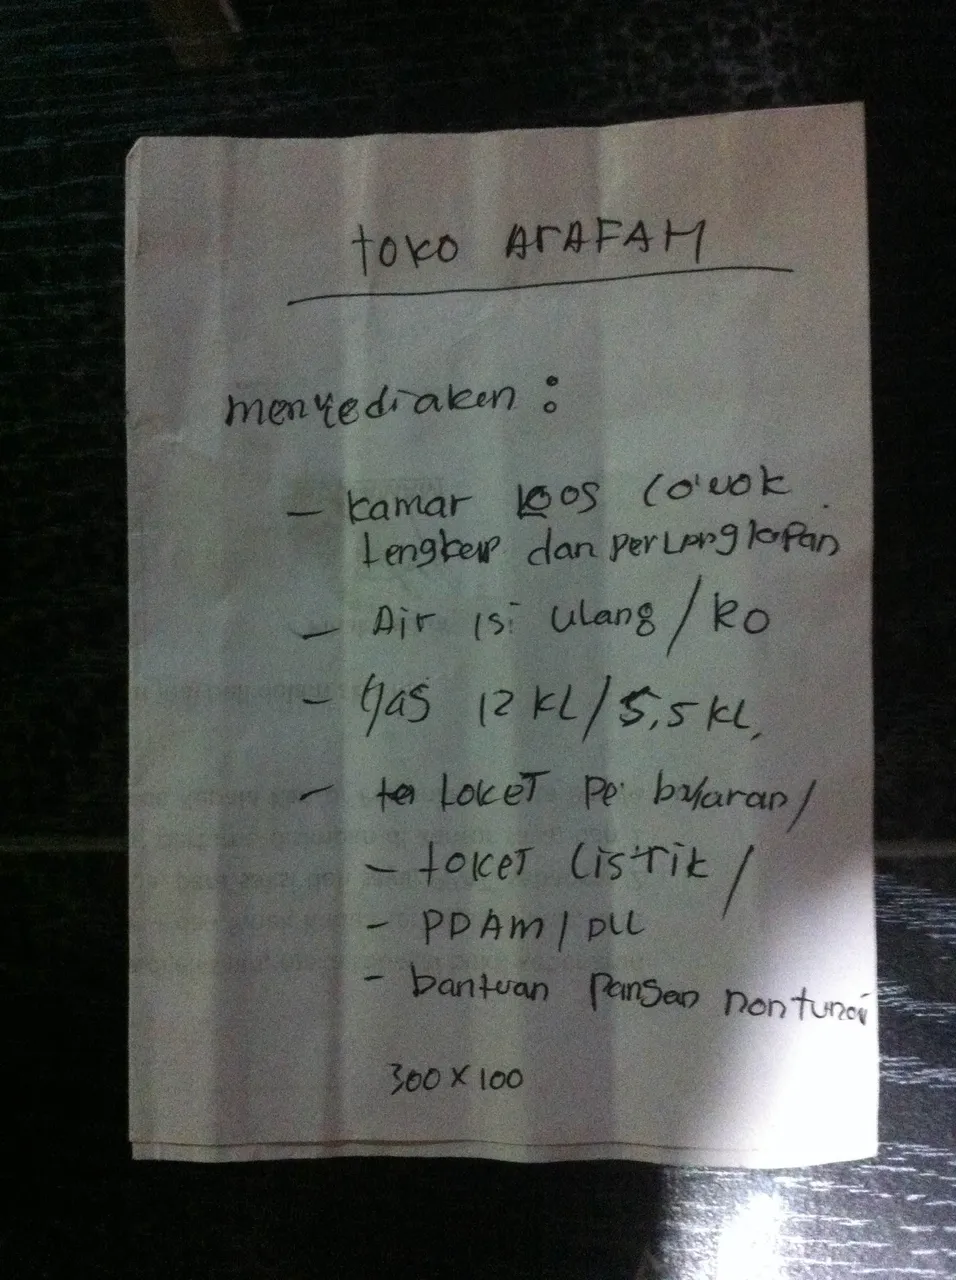 toko ArAFAH
menyediakan :
- kamar koos cowok
Lengkap dan perlengkapan
- Air isi ulang / RO
- Gas 12 KL / 5,5 KL,
- Loket pe byaran /
- toket Listrik /
- PDAM / DLL
- bantuan pansan nontunai
300 X 100